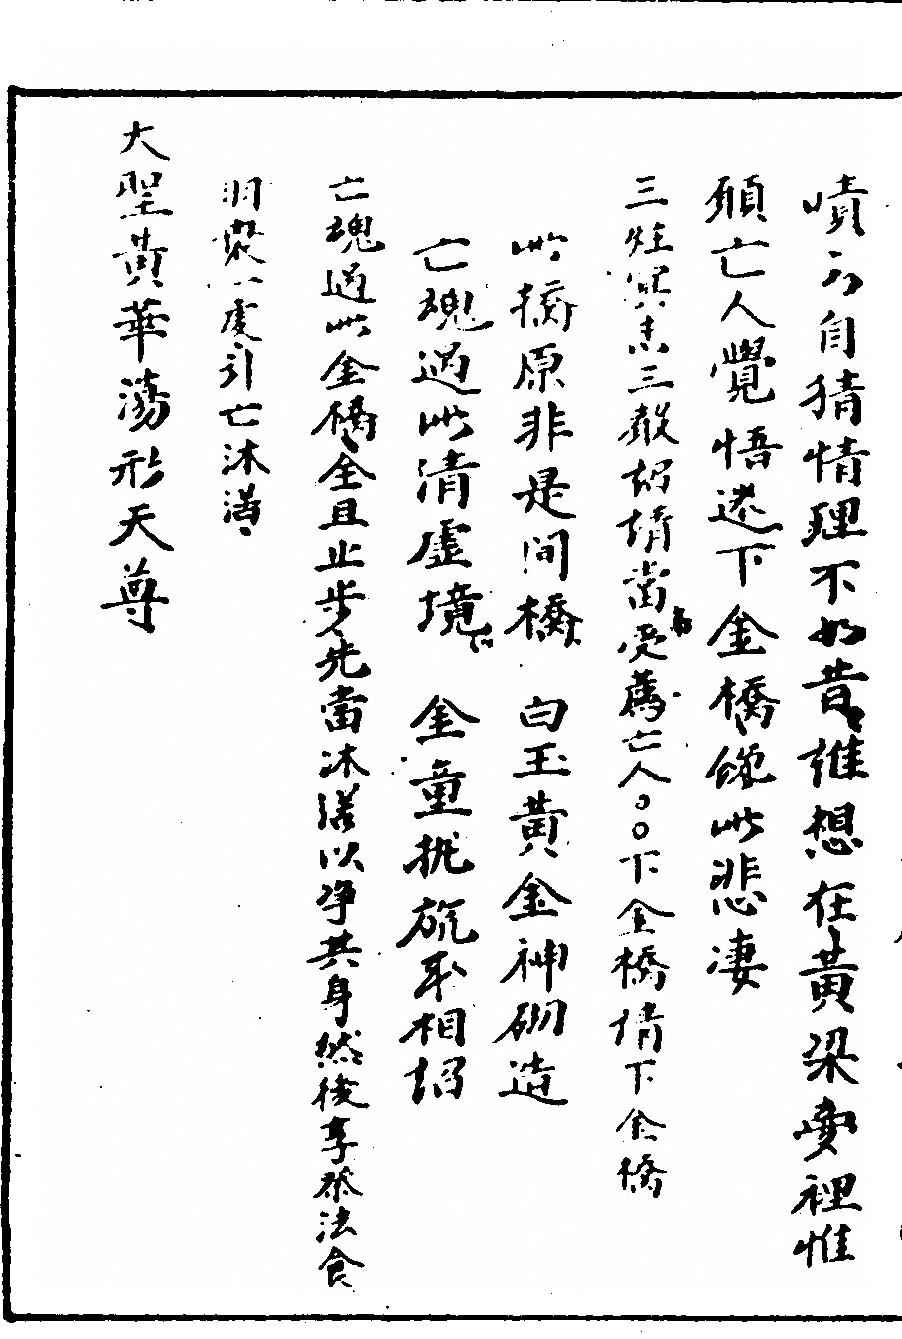 嘖 自猜情理不如昔誰想在黃梁夢裡惟
願亡人覺悟迷下金橋 此悲凄
三炷冥 三 招請當受薦亡人〇〇下金橋請下金橋
此橋原非是间橋 白玉黃金神砌造
亡魂過此清虛境 金童 旒 相招
亡魂過此金橋全且止步先當沐 以净其身然後享 法食
羽衆 虔引亡沐
大聖黃華蕩形天尊